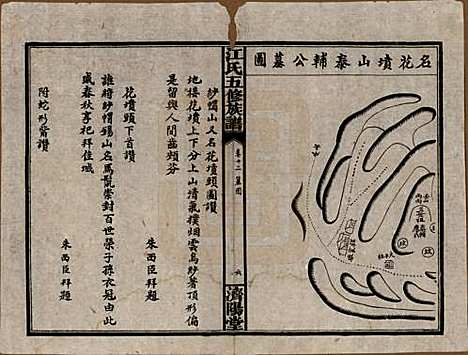 名花墳山泰輔公墓圖
江氏五修族譜
卷十二 墓圖
濟陽堂
紗帽山又名花墳頭圖讚
地樓花墳上下分上山清氣撲烟雲烏紗著頂形偏
是留與人間齒頰芬
朱西臣拜題
花墳頭下首讚
誰將紗帽錫山名馬鬣崇封百世榮子孫衣冠由此
盛春秋享祀拜佳城
朱西臣拜題
附蛇形嘴讚